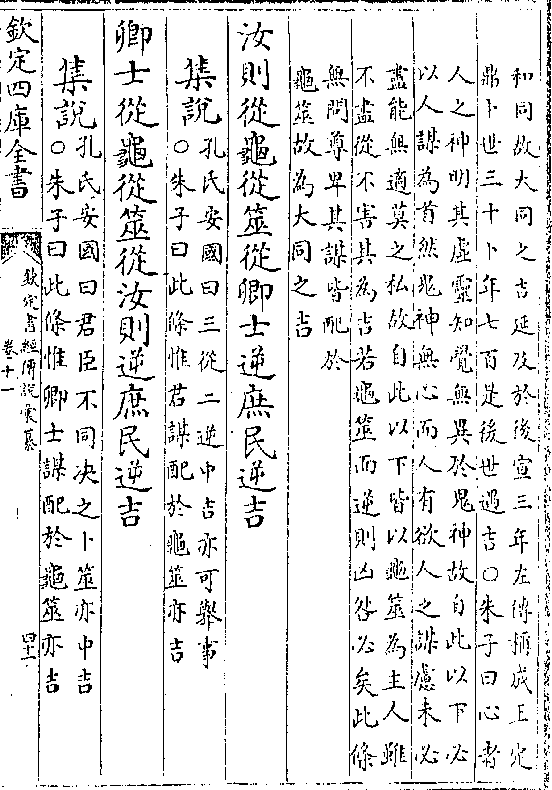 和同故大同之吉延及於後宣三年左傳稱成王定
鼎卜世三十卜年七百是後世遇吉○朱子曰心者
人之神明其虛靈知覺無異於鬼神故自此以下必
以人謀為首然鬼神無心而人有欲人之謀慮未必
盡能無適莫之私故自此以下皆以龜筮為主人雖
不盡從不害其為吉若龜筮而逆則凶咎必矣此條
無問尊卑其謀皆配於
龜筮故為大同之吉
汝則從龜從筮從卿士逆庶民逆吉
集說孔氏安國曰三從二逆中吉亦可舉事
○朱子曰此條惟君謀配於龜筮亦吉
卿士從龜從筮從汝則逆庶民逆吉
集說孔氏安國曰君臣不同决之卜筮亦中吉
○朱子曰此條惟卿士謀配於龜筮亦吉
欽定四庫全書
欽定書經傳說彙纂
卷十一
四十二